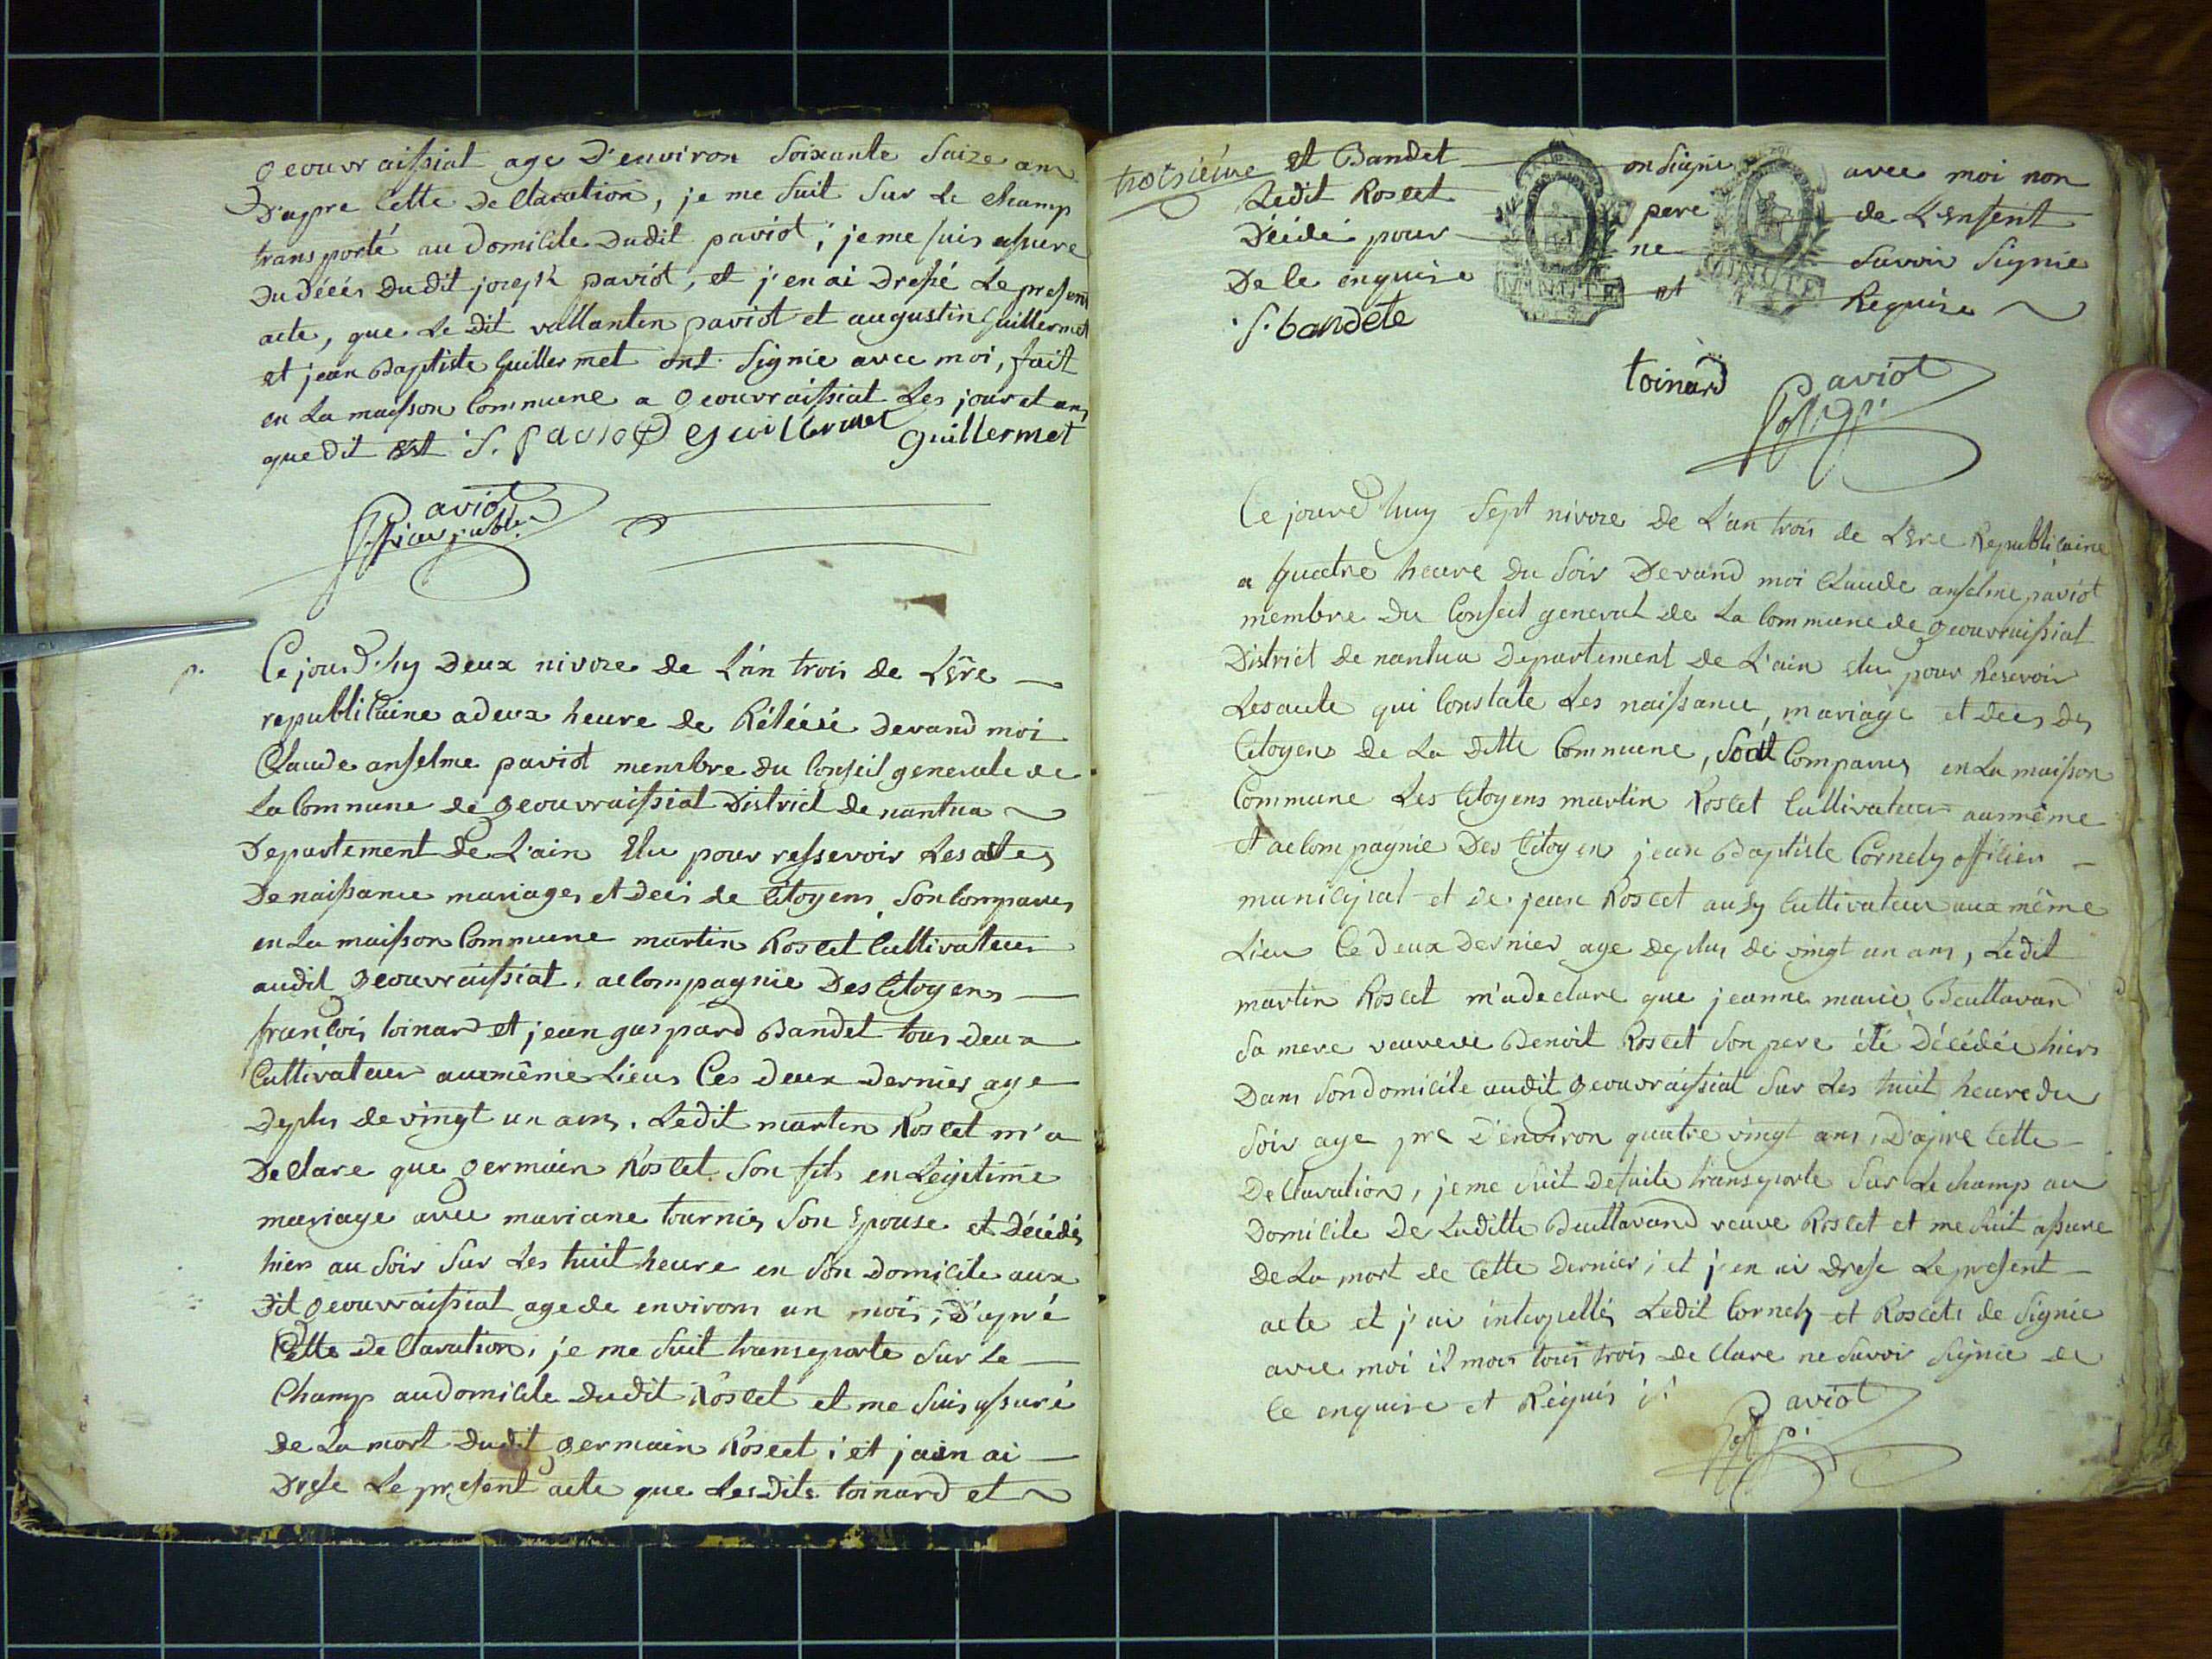 geouvraissiat age D'environ Soixante Saize ans
D'apre Cette Declaration, je me suit sur Le Champ
transporté au domicile Dudit paviot ; je me suis assure
du décés Dudit joseph paviot, et j'en ai Dressé Le present
acte, que Le Dit vallantin paviot et augustin Guillermet
et jean Baptiste Guillermet ont Signie avec moi, fait
en La maisson Commune a geouvraissiat Les jour et ans
que dit est S. paviot guillermet Guillermet
Paviot
officier public
Ce jourd'hy Deux nivoze de L'an trois de L'ere
republicaine a deux heure de Rélévé Devand moi
Claude anselme paviot membre du Conseil generale de
La Commune de geouvraissiat District de nantua
Departement de L'ain Elu pour ressevoir Les actes
De naissance mariages et décés de Citoyens, Son Comparus
en La maisson Commune martin Roscet Cultivateur
audit geouvraissiat, accompagnie Des Citoyens
françois toinard et jean gaspard Bandet tous deux
Cultivateur aux même Lieus Ces deux Dernier age
deplus de vingt un ans. Ledit martin Roscet m'a
Declare que germain Roscet Son fils en Légitime
mariage avec mariane tournier Son Epouse et Décédé
hiers au Soir Sur Les huit heure en Son Domicile aux
Dit geouvraissiat age de environs un mois ; D'apré
Cette Declaration, je me suit transporte Sur Le
Champ au Domicile Dudit Roscet et me Suis assuré
de La mort dudit germain Roscet ; et j'ain ai
Dresse Le present acte que Lesdits toinard et
troisieme
et Bandet on Signie avec moi non
Ledit Roscet pere de L'Ensent
Décidé pour ne Savoir Signie
De le enquise et Requise
MINUTE MINUTE
S. bandete
toinard
Paviot
off. p.
Ce jourd'huy Sept nivoze de L'an trois de L'Ere Republicaine
a quatre heure du Soir Devand moi Claude anselme paviot
membre du Conseil general de La Commune de geouvraissiat
District de nantua Departement de L'ain elu pour Resevoir
Les acte qui Constate Les naissance, mariage et deces des
Citoyens de La ditte Commune, Sont Comparus en La maisson
Commune Les Citoyens martin Roscet Cultivateur aux même
et accompagnie Des Citoyens jean Baptiste Cornely officier
municipal et de jean Roscet aussy Cultivateur aux même
Lieu Ce deux Dernier age deplus de vingt un ans, Ledit
martin Roscet m'a declare que jeanne marie Beuttavand
Sa mere veuve de Benoit Roscet Son pere été Décédée hiers
Dans Son domicile audit geouvraissiat Sur Les huit heure du
Soir age pre d'environ quatre vingt ans, D'apre Cette
Declaration, je me suit desuite transporte Sur Le champ au
Domicile De Laditte Beuttavand veuve Roscet et me suit assure
de La mort de Cette Dernier ; et j'en ai dresse Le present
acte et j'ai interpellés Ledit Cornely et Roscets de Signie
avec moi il mon tous trois declare ne Savoir Signie de
Ce enquire et Réquis
Paviot
off. p.